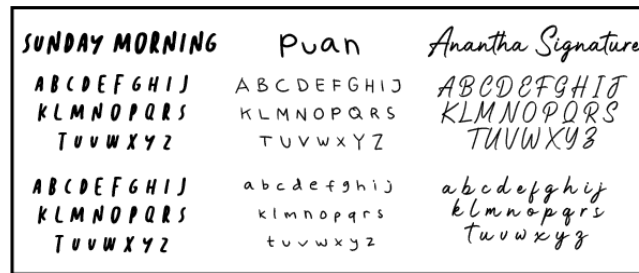 SUNDAY MORNING
ABCDEFGHIJ
KLMNOPQRS
TUVWXYZ
ABCDEFGHIJ
KLMNOPQRS
TUVWXYZ
Puan
ABCDEFGHIJ
KLMNOPQRS
TUVWXYZ
abcdefghij
klmnopqrs
tuvwxyz
Anantha Signature
ABCDEFGHIJ
KLMNOPQRS
TUVWXYZ
abcdefghij
klmnopqrs
tuvwxyz